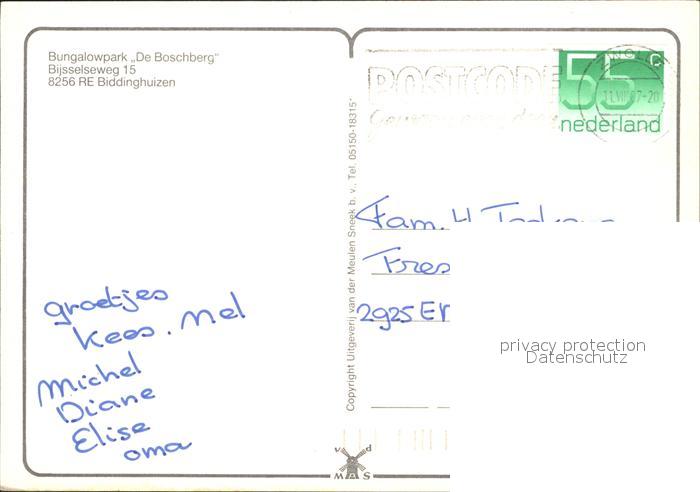 Bungalowpark „De Boschberg"
Bijsselseweg 15
8256 RE Biddinghuizen
POSTCODE
55 c
nederland
ZWOLLE
11.VIII.87-20
Copyright Uitgeverij van der Meulen Sneek b. v., Tel. 05150-18315*
Fam. H.
Fres
2925 Er
privacy protection
Datenschutz
groetjes
Kees. Mel
Michel
Diane
Elise
oma
v d
MAS